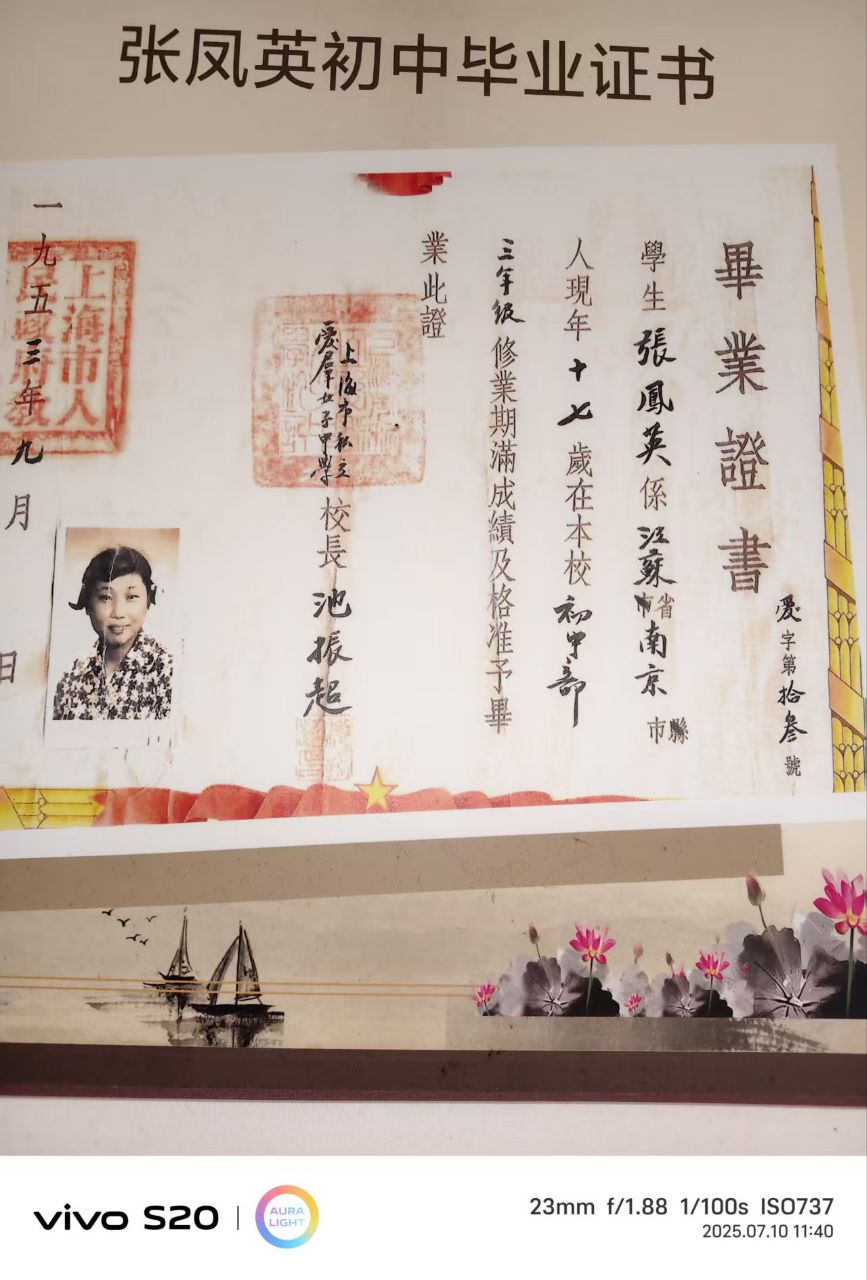 张凤英初中毕业证书
畢業證書
愛字第拾叁號
學生張鳳英係江蘇省市南京縣市
人現年十七歲在本校初中部
三年級修業期滿成績及格准予畢
業此證
上海市私立
愛羣女子中學校長池振超
一九五三年九月日
上海市人
民政府教
vivo S20
AURA
LIGHT
23mm f/1.88 1/100s ISO737
2025.07.10 11:40